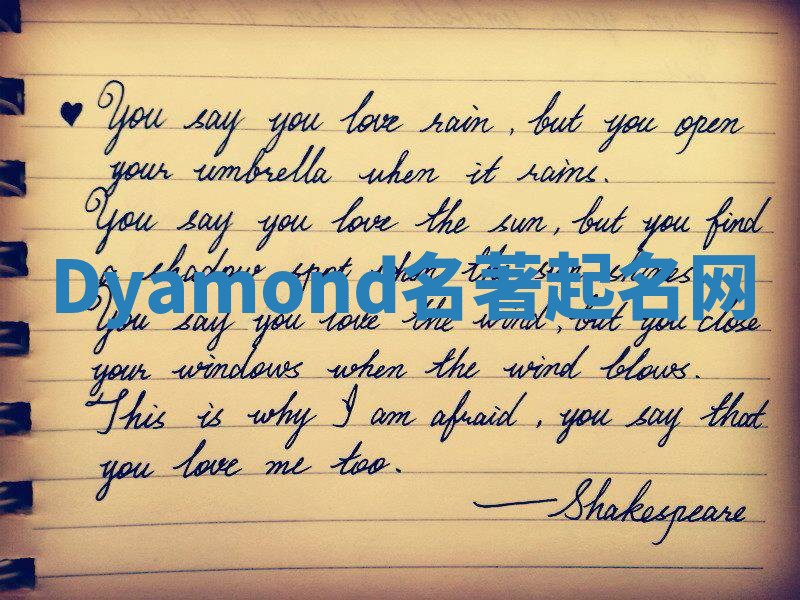 ♥ You say you love rain, but you open
your umbrella when it rains.
You say you love the sun, but you find
a shadow spot when the sun shines.
Dyamond名著起名网
You say you love the wind, but you close
your windows when the wind blows.
This is why I am afraid, you say that
you love me too.
— Shakespeare